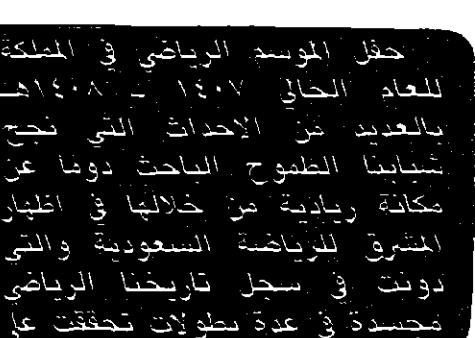 حفل الموسم الرياضي في المملكة
للعام الحالي ١٤٠٧ - ١٤٠٨هـ
بالعديد من الاحداث التي نجح
شبابنا الطموح الباحث دوما عن
مكانة ريادية من خلالها في اظهار
المشرق للرياضة السعودية والتي
دونت في سجل تاريخنا الرياضي
مجسدة في عدة بطولات تحققت على